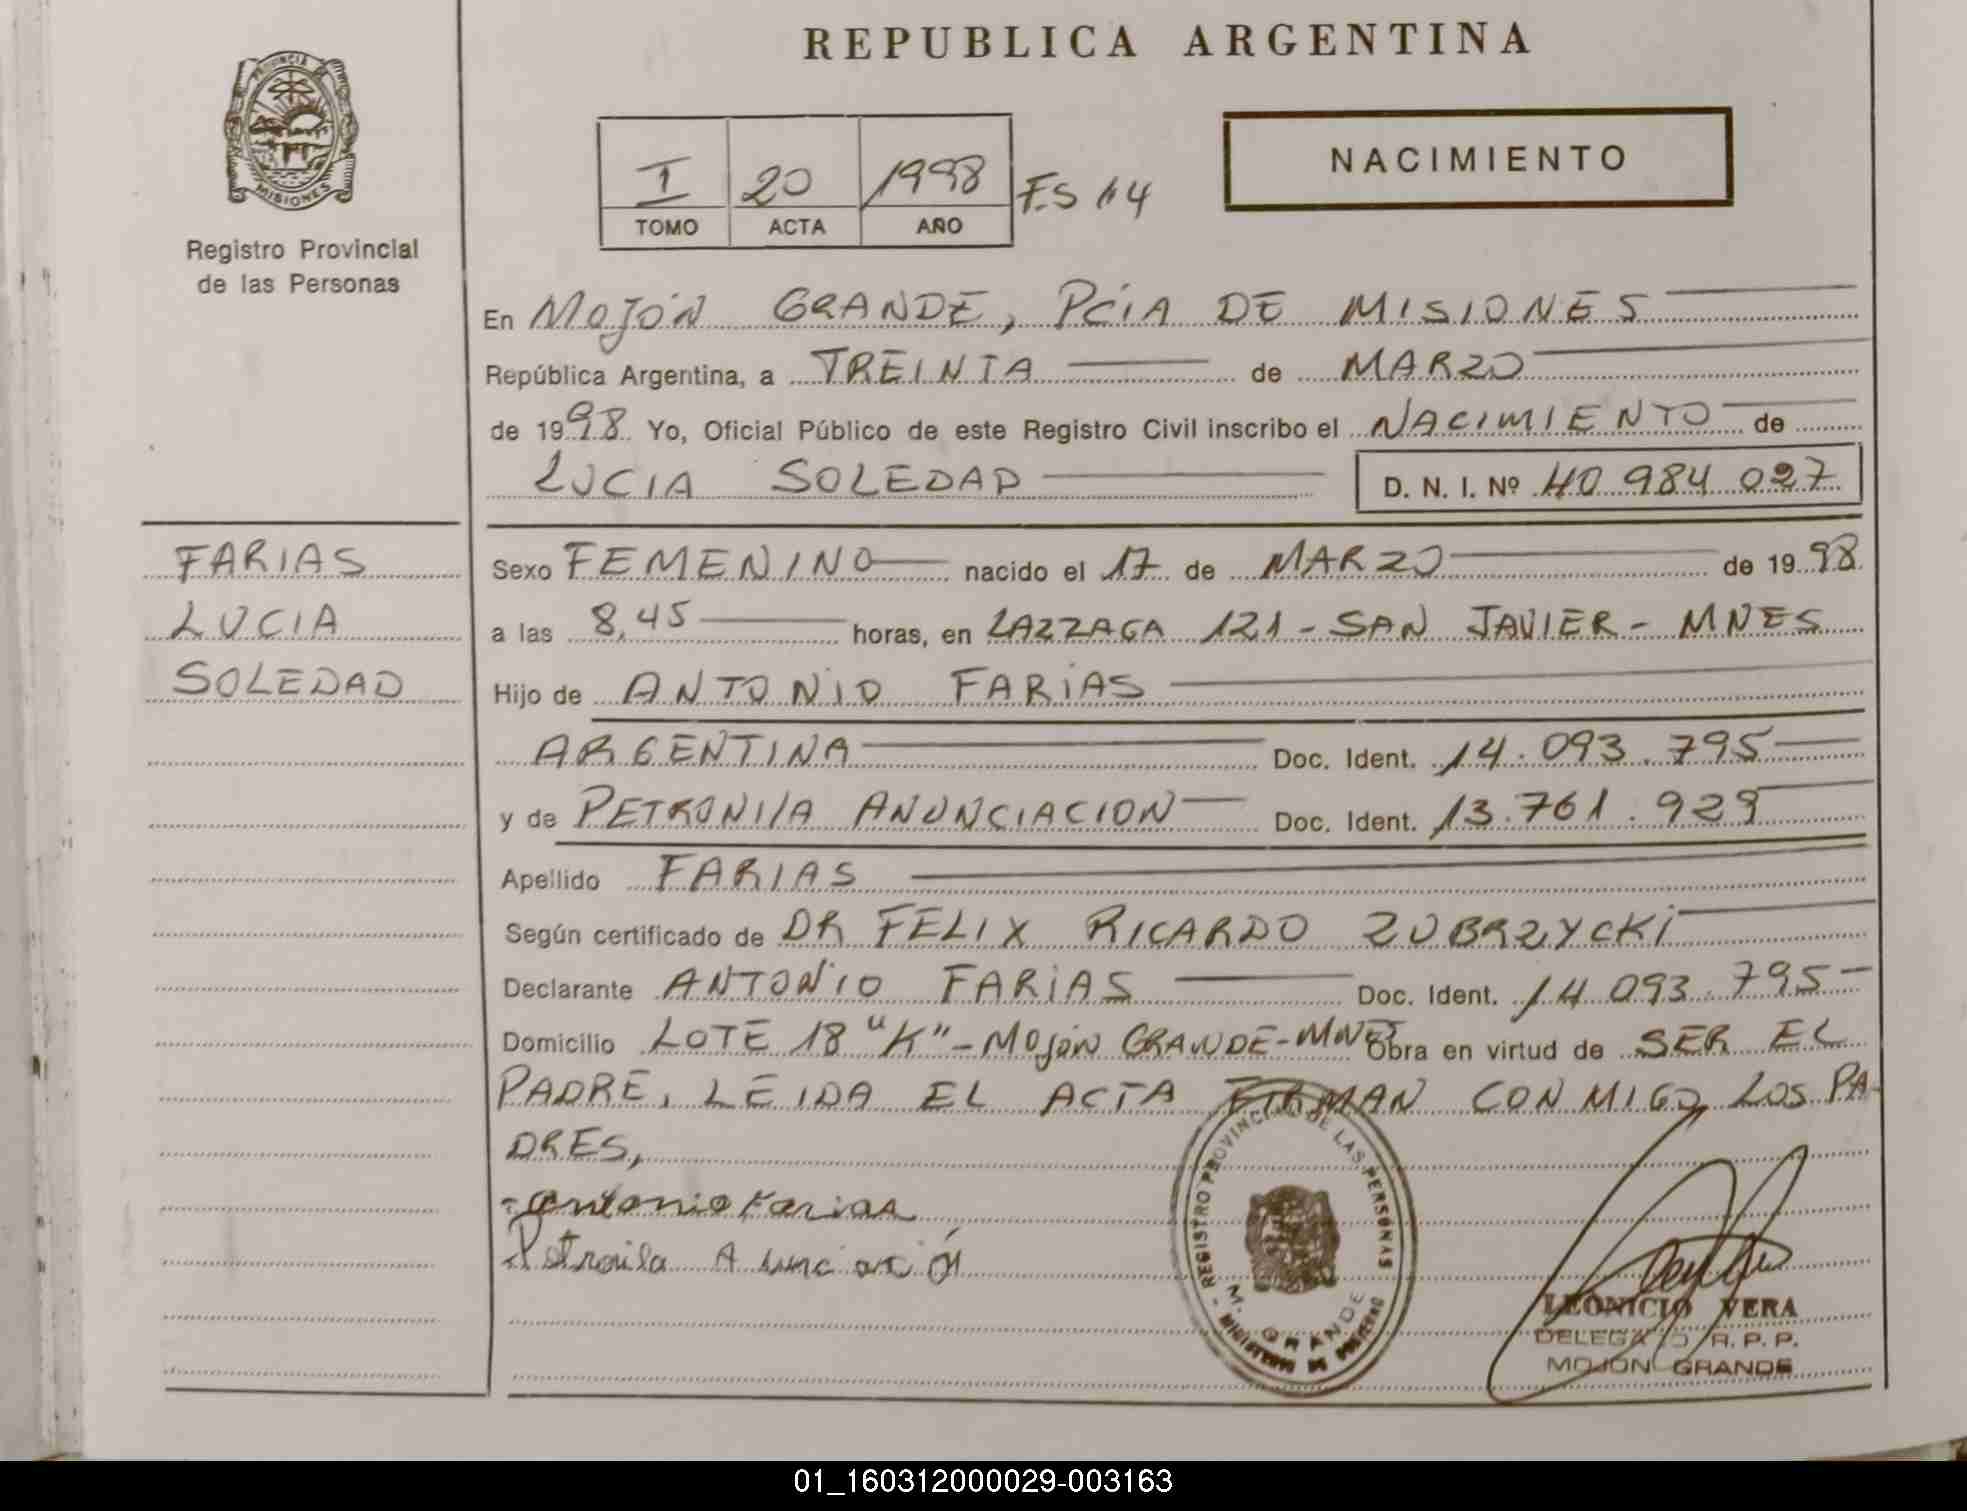 REPUBLICA ARGENTINA
PROVINCIA DE
MISIONES
Registro Provincial
de las Personas
I 20 1998 FS 14
TOMO ACTA AÑO
NACIMIENTO
En MOJÓN GRANDE, PCIA DE MISIONES
República Argentina, a TREINTA de MARZO
de 1998 Yo, Oficial Público de este Registro Civil inscribo el NACIMIENTO de
LUCIA SOLEDAD D. N. I. Nº 40 984 027
FARIAS
LUCIA
SOLEDAD
Sexo FEMENINO nacido el 17 de MARZO de 1998
a las 8,45 horas, en LAZZAGA 121 - SAN JAVIER - MNES
Hijo de ANTONIO FARIAS
ARGENTINA Doc. Ident. 14.093.795
y de PETRONILA ANUNCIACION Doc. Ident. 13.761.929
Apellido FARIAS
Según certificado de DR FELIX RICARDO ZUBRZYCKI
Declarante ANTONIO FARIAS Doc. Ident. 14 093.795
Domicilio LOTE 18 "K" - MOJÓN GRANDE - MNES Obra en virtud de SER EL
PADRE, LEIDA EL ACTA FIRMAN CONMIGO LOS PA-
DRES,
Antonio Farias
Petronila Anunciación
REGISTRO PROVINCIAL DE LAS PERSONAS
M. GRANDE
MINISTERIO DE GOBIERNO
LEONICIO VERA
DELEGADO R. P. P.
MOJON GRANDE
01_160312000029-003163